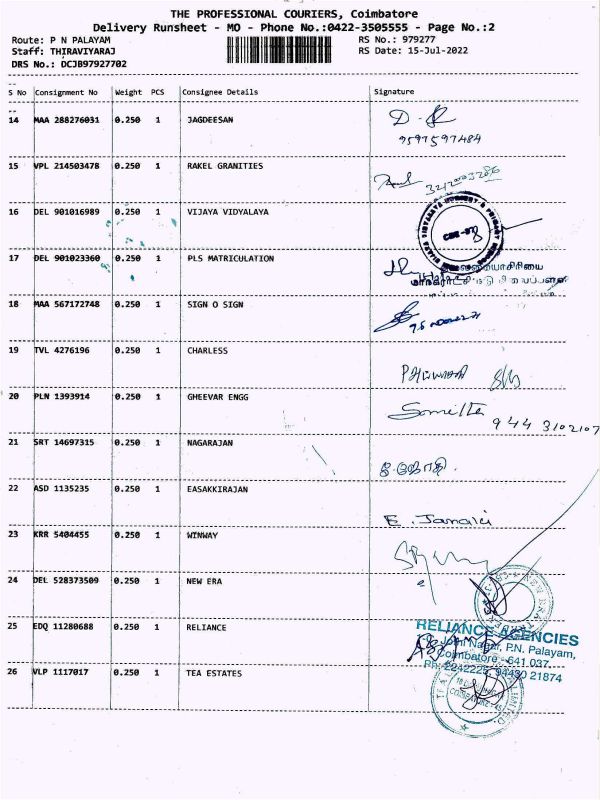 THE PROFESSIONAL COURIERS, Coimbatore
Delivery Runsheet - MO - Phone No.:0422-3505555 - Page No.:2
Route: P N PALAYAM RS No.: 979277
Staff: THIRAVIYARAJ RS Date: 15-Jul-2022
DRS No.: DCJB97927702
S No Consignment No Weight PCS Consignee Details Signature
14 MAA 288276031 0.250 1 JAGDEESAN
9597597484
15 VPL 214503478 0.250 1 RAKEL GRANITIES
16 DEL 901016989 0.250 1 VIJAYA VIDYALAYA
17 DEL 901023360 0.250 1 PLS MATRICULATION
18 MAA 567172748 0.250 1 SIGN O SIGN
19 TVL 4276196 0.250 1 CHARLESS
20 PLN 1393914 0.250 1 GHEEVAR ENGG
944 3102107
21 SRT 14697315 0.250 1 NAGARAJAN
22 ASD 1135235 0.250 1 EASAKKIRAJAN
E. Janaki
23 KRR 5404455 0.250 1 WINWAY
24 DEL 528373509 0.250 1 NEW ERA
25 EDQ 11280688 0.250 1 RELIANCE
RELIANCE AGENCIES
Nagar, P.N. Palayam,
Coimbatore - 641 037.
Ph: 2242225, 94430 21874
26 VLP 1117017 0.250 1 TEA ESTATES